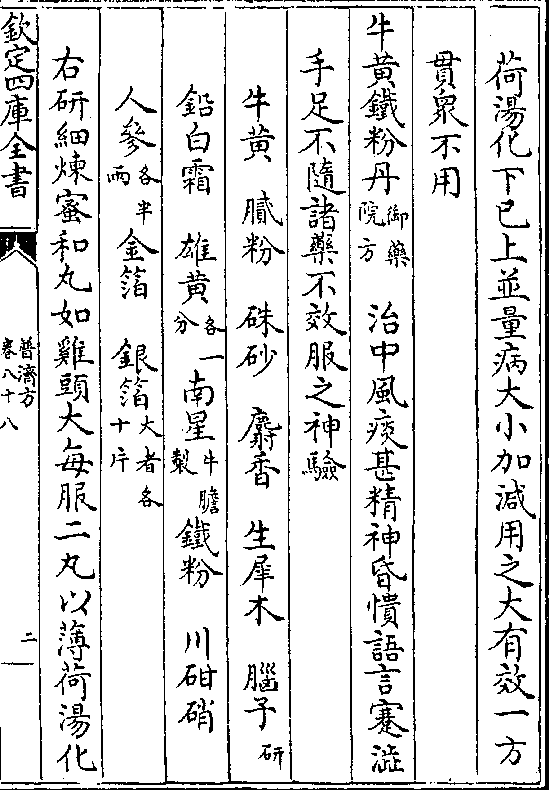 荷湯化下已上並量病大小加減用之大有效一方
貫衆不用
牛黄鐵粉丹御藥院方 治中風痰甚精神昏憒語言蹇澁
手足不隨諸藥不效服之神驗
牛黄 膩粉 硃砂 麝香 生犀木 腦子研
鉛白霜 雄黄各一分 南星牛膽製 鐵粉 川甜硝
人參各半兩 金箔 銀箔大者各十片
右研細煉蜜和丸如雞頭大每服二丸以薄荷湯化
欽定四庫全書
普濟方
卷八十八
二